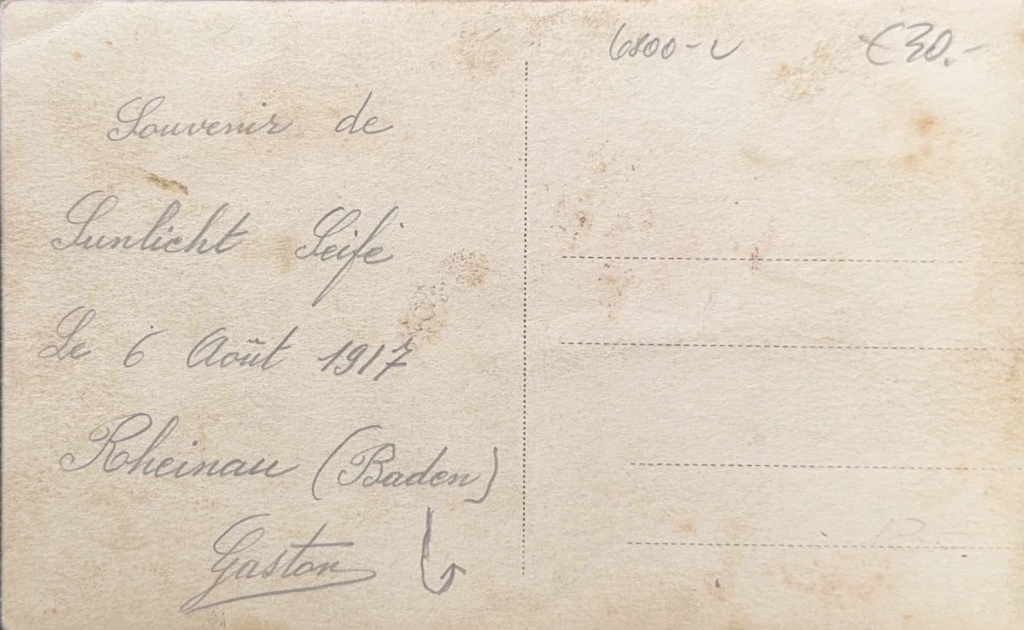 6800-
€30.-
Souvenir de
Sunlicht Seife
Le 6 Août 1917
Rheinau (Baden)
Gaston